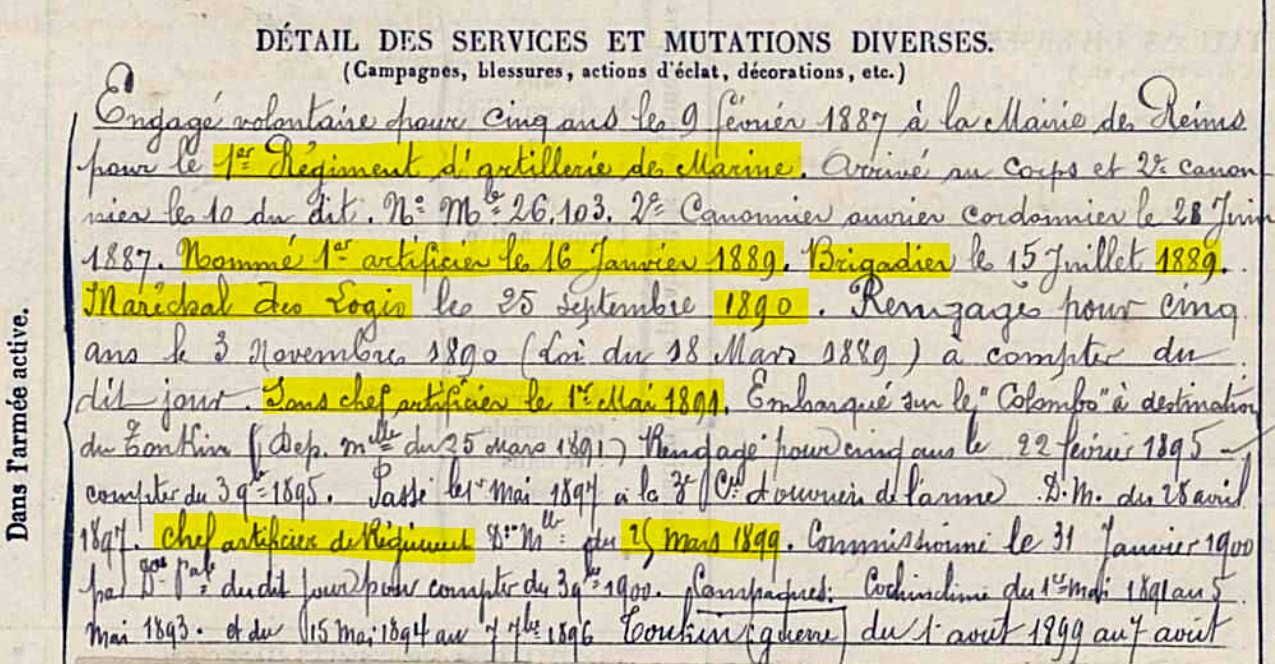 DÉTAIL DES SERVICES ET MUTATIONS DIVERSES.
(Campagnes, blessures, actions d'éclat, décorations, etc.)
Dans l'armée active.
Engagé volontaire pour cinq ans le 9 février 1887 à la Mairie de Reims
pour le 1er Régiment d'artillerie de Marine. Arrivé au Corps et 2e canon-
nier le 10 du dit. No Mle 26.103. 2e Canonnier ouvrier cordonnier le 28 Juin
1887. Nommé 1er artificier le 16 Janvier 1889. Brigadier le 15 Juillet 1889.
Maréchal des Logis le 25 septembre 1890. Rengagé pour cinq
ans le 3 Novembre 1890 (Loi du 18 Mars 1889) à compter du
dit jour. Sous chef artificier le 1er Mai 1891. Embarqué sur le "Colombo" à destination
du Tonkin (Dep. mlle du 25 mars 1891) Rengagé pour cinq ans le 22 février 1895
compter du 3 9bre 1895. Passé le 1er Mai 1897 à la 3e Cie d'ouvriers de l'arme D. M. du 28 avril
1897. chef artificier de Régiment Don Mlle du 25 mars 1899. Commissionné le 31 Janvier 1900
par du dit jour pour compter du 3 9bre 1900. Campagnes: Cochinchine du 1er mai 1891 au 5
Mai 1893. et du 15 Mai 1894 au 7 7bre 1896 Tonkin (guerre) du 1er août 1899 au 7 août